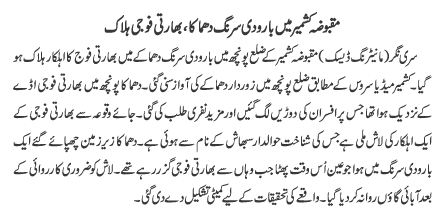 مقبوضہ کشمیر میں بارودی سرنگ دھماکا، بھارتی فوجی ہلاک
سری نگر (مانیٹرنگ ڈیسک) مقبوضہ کشمیر کے ضلع پونچھ میں بارودی سرنگ دھماکے میں بھارتی فوج کا اہلکار ہلاک ہو
گیا۔ کشمیر میڈیا سروس کے مطابق ضلع پونچھ میں زوردار دھماکے کی آواز سنی گئی۔ دھماکا پونچھ میں بھارتی فوجی اڈے
کے نزدیک ہوا تھا جس پر افسران کی دوڑیں لگ گئیں اور مزید نفری طلب کی گئی۔ جائے وقوعہ سے بھارتی فوجی کے
ایک اہلکار کی لاش ملی ہے جس کی شناخت حوالدار سبھاش کے نام سے ہوئی ہے۔ دھماکا زیر زمین چھپائے گئے ایک
بارودی سرنگ میں ہوا جو عین اُس وقت پھٹا جب وہاں سے بھارتی فوجی گزر رہے تھے۔ لاش کو ضروری کارروائی کے
بعد آبائی گاؤں روانہ کر دیا گیا۔ واقعے کی تحقیقات کے لیے کمیٹی تشکیل دے دی گئی۔